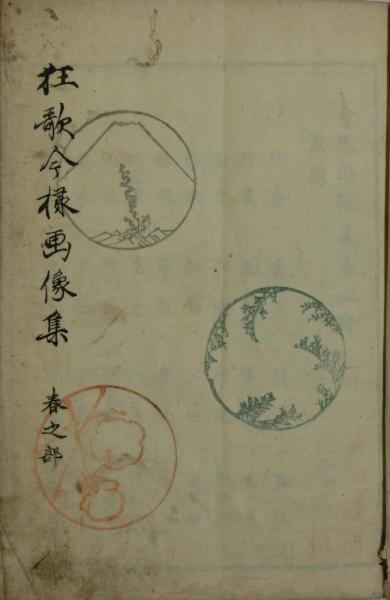 狂歌今様画像集
春之部